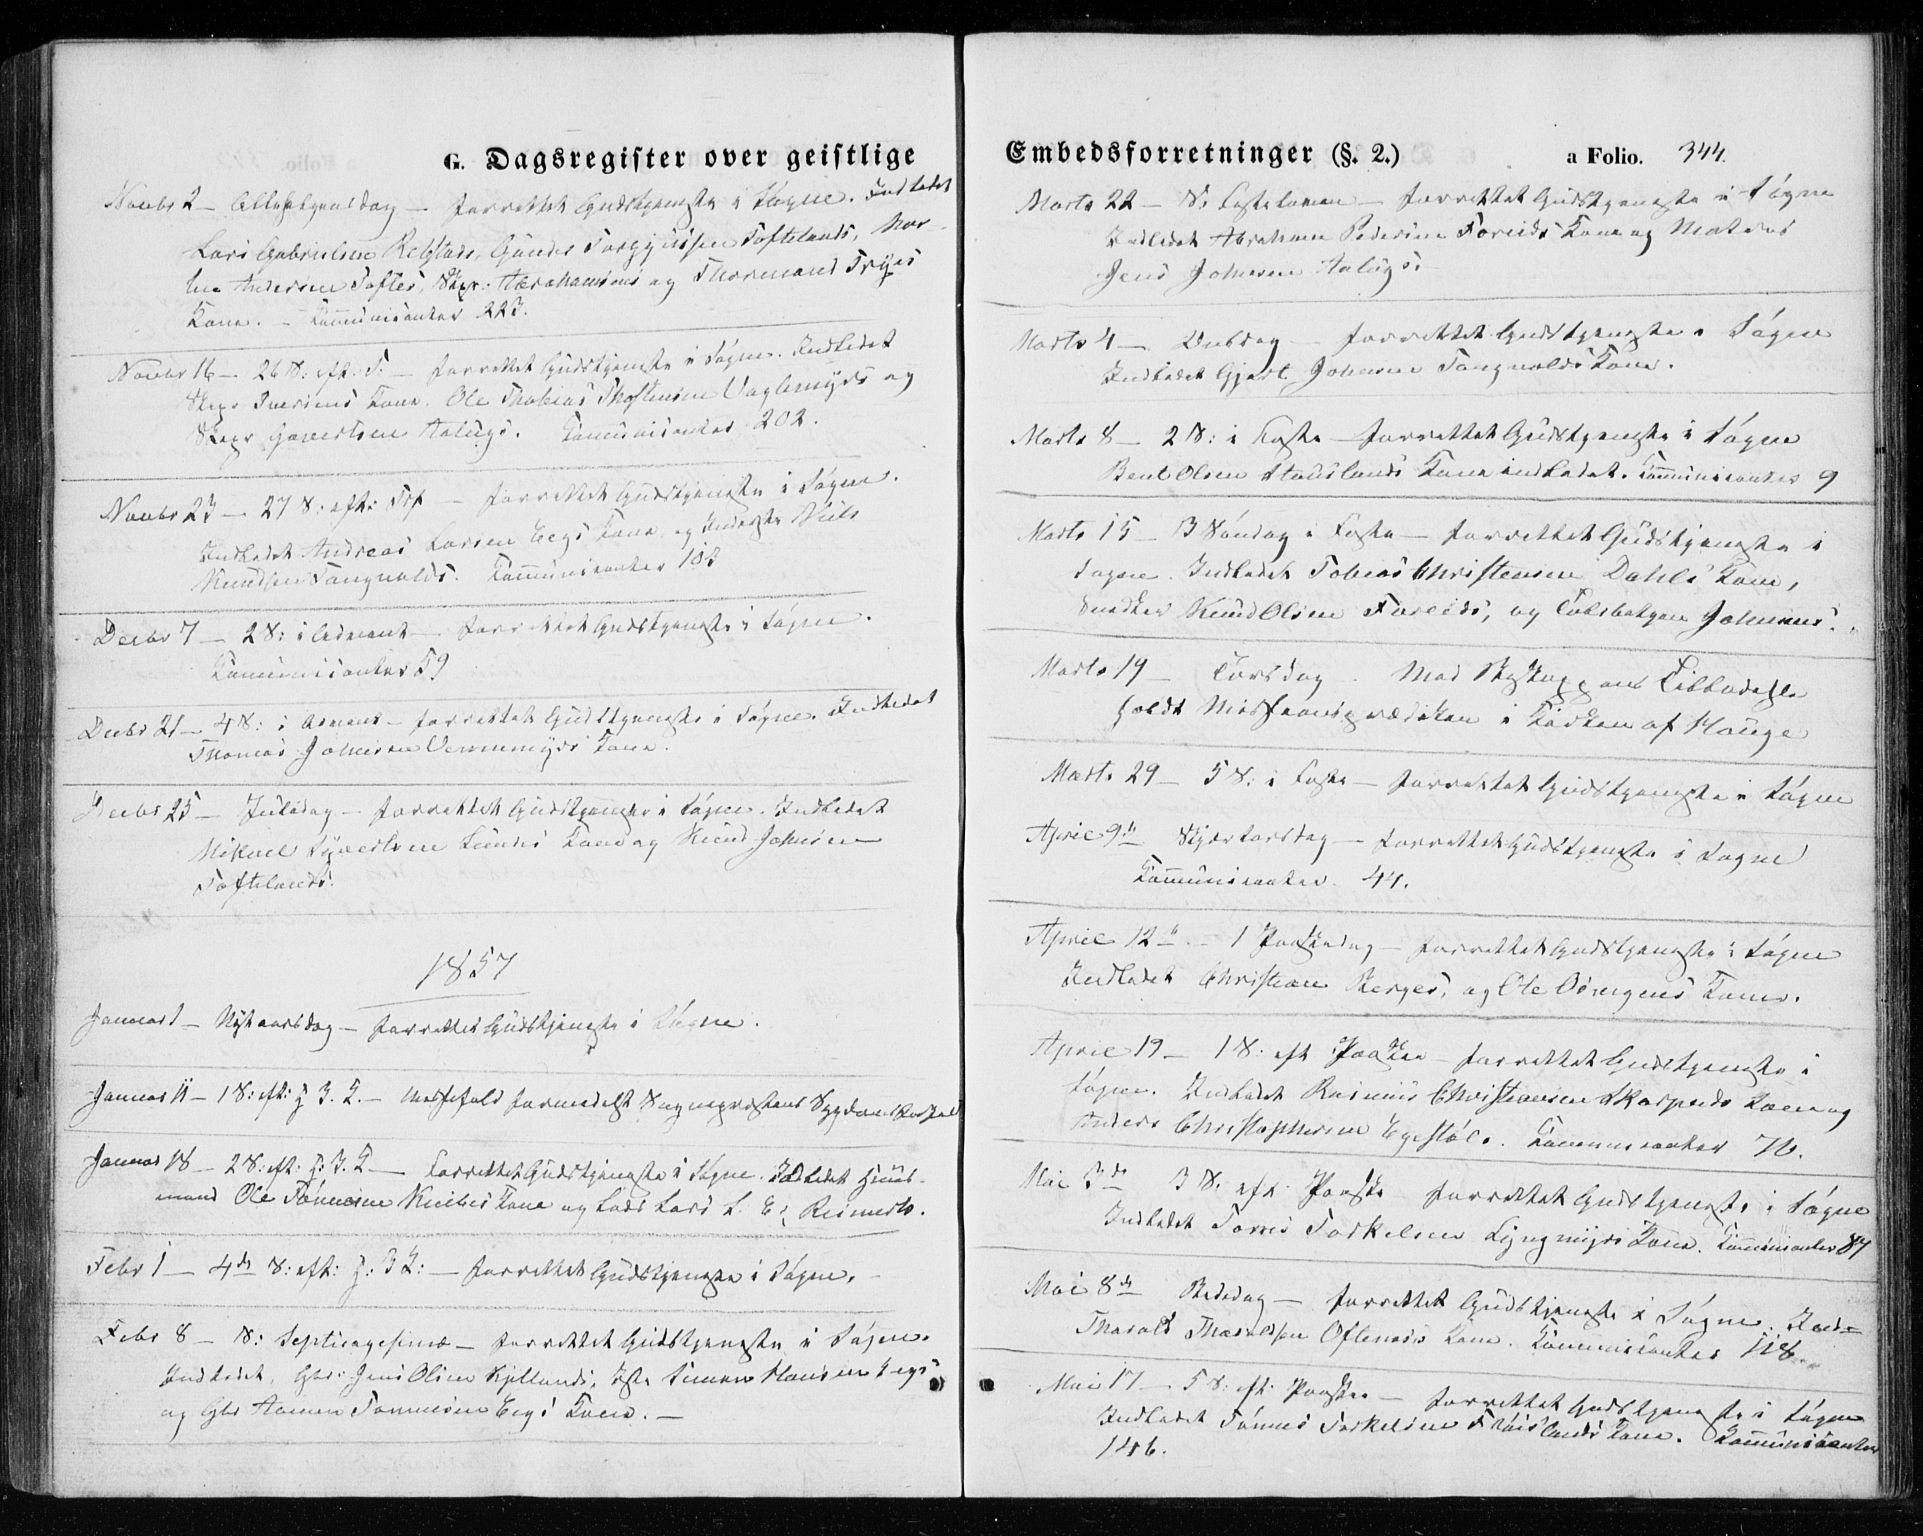 G. Dagsregister over geistlige
Novbr 2 – Allehelgensdag – forrettet Gudstjeneste i Søgne. Indledet
Lars Gabrielsen Refstads, Gunder Torgjussen Toftelands,
Andersen Toftes, Skpr: Abrahamsens og Thormand Tryes
Kone. – Communicanter 223.
Novbr 16 – 26 S: eft. T: – forrettet Gudstjeneste i Søgne. Indledet
Skpr Iversens Kone. Ole Thobias Thostensen Vaglemyrs og
Skpr Gavertsen Aalugs. Communicanter 202.
Novbr 23 – 27 S: eft: Tr – forrettet Gudstjeneste i Søgne.
Indledet Andreas Larsen Eegs Kone, og Niels
Knudsen Tangvalds. Communicanter 108
Decbr 7 – 2 S: i Advent – forrettet Gudstjeneste i Søgne.
Communicanter 59
Decbr 21 – 4 S: i Advent – forrettet Gudstjeneste i Søgne. Indledet
Thomas Johnsen Vemmemyrs Kone.
Decbr 25 – Juledag – forrettet Gudstjeneste i Søgne. Indledet
Mikael Syvertsen Lundes Kone og Knud Johnsen
Toftelands.
1857
Januar 1 – Nytaarsdag – forrettet Gudstjeneste i Søgne.
Januar 11 – 1 S: eft: H. 3. K. – Messefald formedelst Sognepræstens Sygdomsforfald
Januar 18 – 2 S: eft: H. 3. K – Forrettet Gudstjeneste i Søgne. Indledet Huus-
mand Ole Tønnesen Kone og Lods Lars L. E. Reinerts.
Febr 1 – 4de S: eft: H: 3 K: – forrettet Gudstjeneste i Søgne. –
Febr 8 – S: Septuagesima – forrettet Gudstjeneste i Søgne.
Indledet, Gbr: Jens Olsen Kjellands, Simon Hansen Eegs
og Gbr Aanen Tønnesen Eegs Kone. –
Embedsforretninger (§. 2.) a Folio. 344.
Marts 22 – S. Fastelaven – forrettet Gudstjeneste i Søgne
Indledet Abraham Pedersen Toreids Kone og Matros
Jens Johnsen Aalugs.
Marts 4 – Onsdag – forrettet Gudstjeneste i Søgne
Indledet Gjert Johnsen Tangvalds Kone.
Marts 8 – 2 S: i Faste – forrettet Gudstjeneste i Søgne
Bent Olsen Stauslands Kone indledet. Communicanter 9
Marts 15 – 3 Søndag i Faste – forrettet Gudstjeneste i
Søgne. Indledet Tobias Christensen Dahls Kone,
Snedker Knud Olsen Toreids, og Johnsens.
Marts 19 – Torsdag. Med Biskoppens Tilladelse
holdt Missionsprædiken i Kirken af Hauge
Marts 29 – 5 S: i Faste – forrettet Gudstjeneste i Søgne
April 9de Skjærtorsdag – forrettet Gudstjeneste i Søgne
Communicanter. 44.
April 12te – 1 Paaskedag – forrettet Gudstjeneste i Søgne
Indledet Christian Berges, og Ole Kone.
April 19 – 1 S: eft Paaske – forrettet Gudstjeneste i
Søgne. Indledet Rasmus Christensen Skarpeids Kone og
Anders Christophersen Egestøls. Communicanter 76.
Mai 3de 3 S. eft. Paaske – forrettet Gudstjeneste i Søgne
Indledet Torres Torkelsen Lyngmyrs Kone. Communicanter 87
Mai 8de Bededag – forrettet Gudstjeneste i Søgne. Indl–
Tharald Tharaldsen Oftenæs Kone. Communicanter 118.
Mai 17 – 5 S: eft: Paaske – forrettet Gudstjeneste i Søgne
Indledet Tønnes Torkelsen Kone. Communicanter
146.